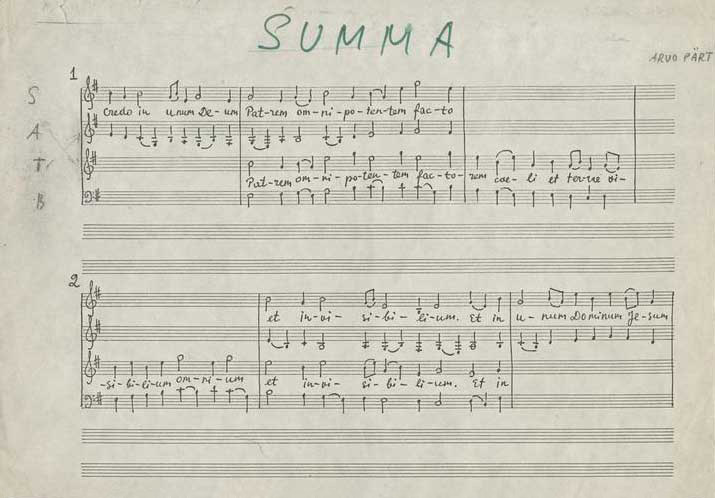 SUMMA
ARVO PÄRT
1
S
Credo in unum De-um Pat-rem om-ni-po-ten-tem fac-to
A
T
Pat-rem om-ni-po-ten-tem fac-to-rem coe-li et ter-rae vi-
B
2
et in-vi-si-bi-lium. Et in u-num Dominum Je-sum
-si-bi-li-um om-ni-um et in-vi-si-bi-li-um. Et in